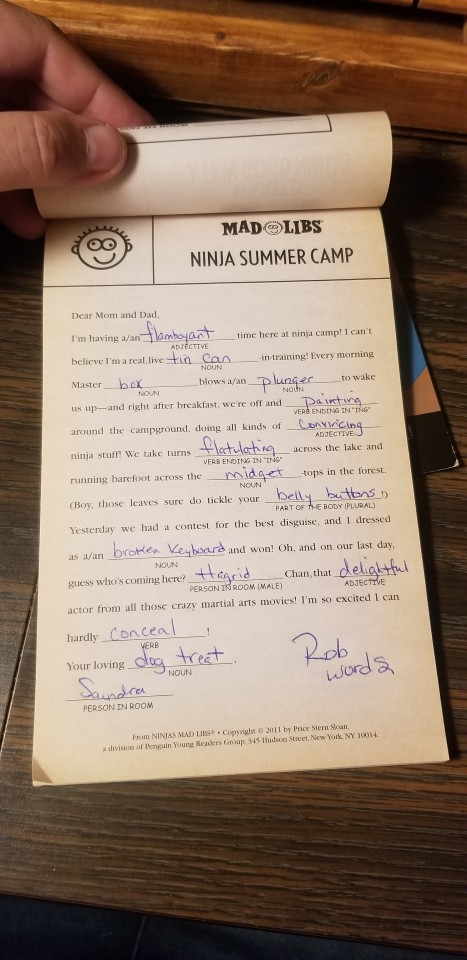 MAD LIBS®
NINJA SUMMER CAMP
Dear Mom and Dad,
I'm having a/an flamboyant time here at ninja camp! I can't
ADJECTIVE
believe I'm a real, live tin can -in-training! Every morning
NOUN
Master box blows a/an plunger to wake
NOUN NOUN
us up—and right after breakfast, we're off and painting
VERB ENDING IN "ING"
around the campground, doing all kinds of convincing
ADJECTIVE
ninja stuff! We take turns flatulating across the lake and
VERB ENDING IN "ING"
running barefoot across the midget -tops in the forest.
NOUN
(Boy, those leaves sure do tickle your belly buttons!)
PART OF THE BODY (PLURAL)
Yesterday we had a contest for the best disguise, and I dressed
as a/an broken keyboard and won! Oh, and on our last day,
NOUN
guess who's coming here? Hagrid Chan, that delightful
PERSON IN ROOM (MALE) ADJECTIVE
actor from all those crazy martial arts movies! I'm so excited I can
hardly conceal !
VERB
Your loving dog treat,
NOUN
Saundra
PERSON IN ROOM
Rob
words
From NINJAS MAD LIBS® • Copyright © 2011 by Price Stern Sloan,
a division of Penguin Young Readers Group, 345 Hudson Street, New York, NY 10014.